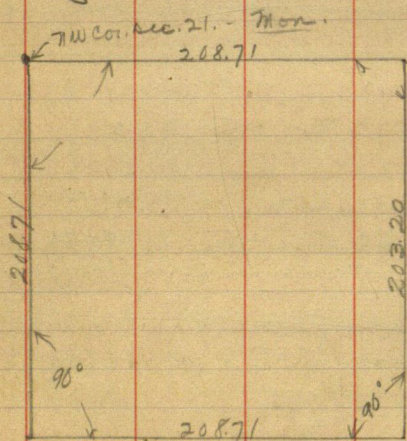 NW Cor. Sec. 21. - Mon.
208.71
208.71
203.20
90°
90°
208.71